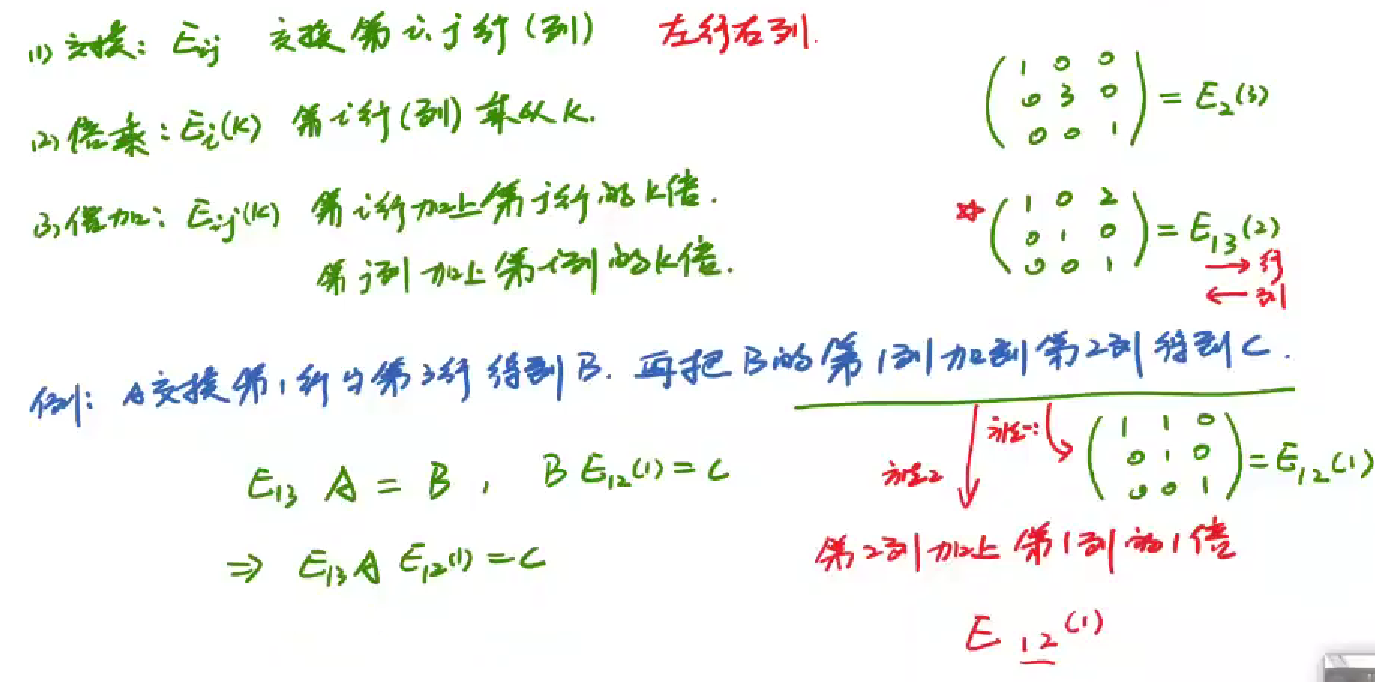 (1) 交换: Eij 交换第i、j行(列) 左行右列.
(2) 倍乘: Ei(k) 第i行(列)乘以k.
(3) 倍加: Eij(k) 第i行加上第j行的k倍.
第j列加上第i列的k倍.
(1 0 0
0 3 0
0 0 1) = E2(3)
☆ (1 0 2
0 1 0
0 0 1) = E13(2)
→ 行
← 列
例: A交换第1行与第3行得到B. 再把B的第1列加到第2列得到C.
E13 A = B, B E12(1) = C
⇒ E13 A E12(1) = C
方法一:
(1 1 0
0 1 0
0 0 1) = E12(1)
方法2
第2列加上第1列的1倍
E12(1)